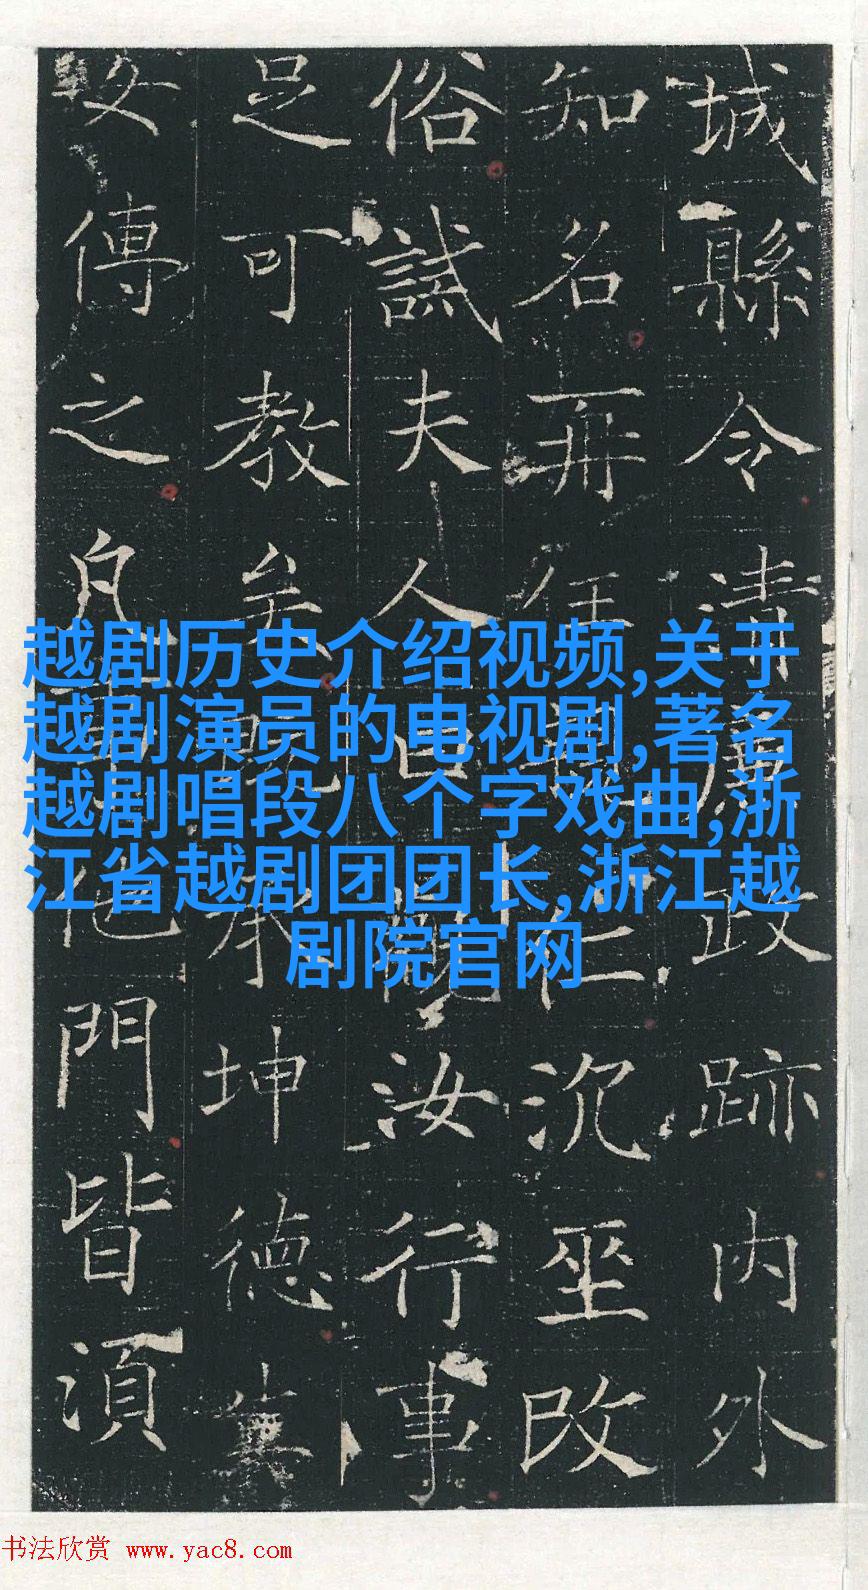 越剧历史介绍视频,关于
越剧演员的电视剧,著名
越剧唱段八个字戏曲,浙
江省越剧团团长,浙江越
剧院官网
城縣令清政跡内外
知名再任仁沉坐改
俗誠夫人曰觀汝行事
足可教矣承坤德
女傳之凡他門皆須
书法欣赏 www.yac8.com